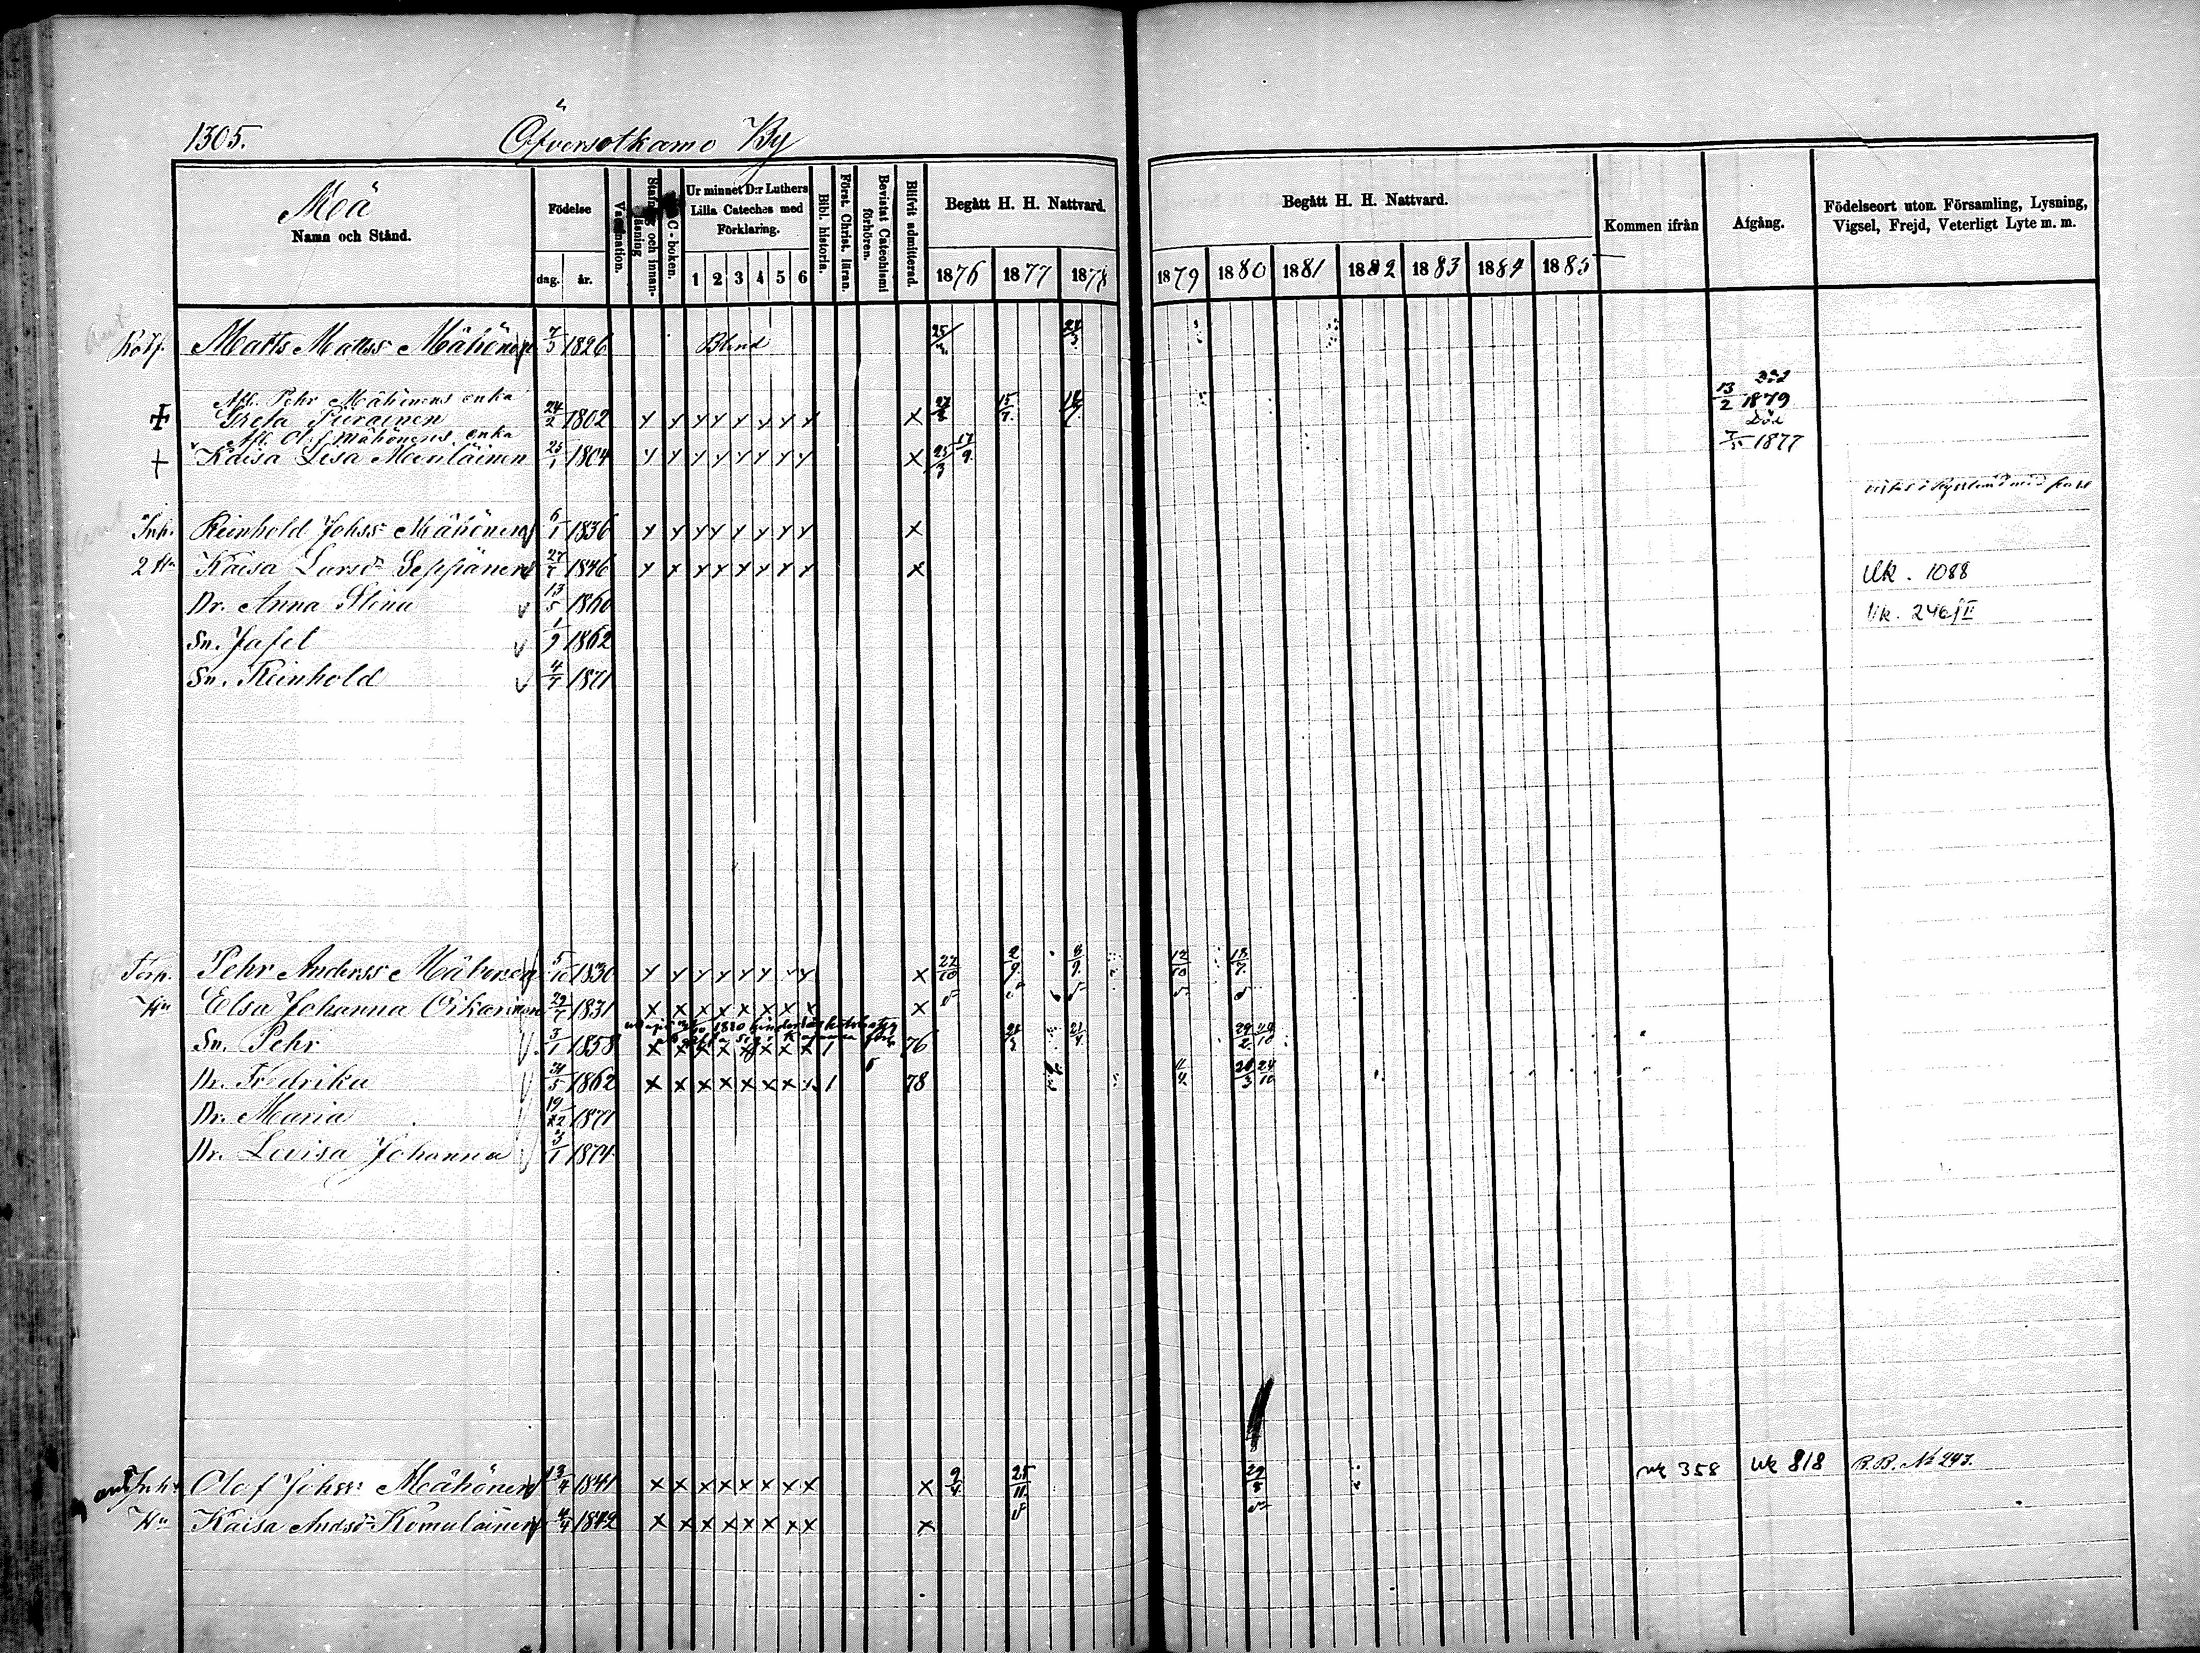 1305. Öfversotkamo By
Meä
Namn och Stånd.
Födelse
dag. år.
Vaccination.
Stafning och innanläsning
C-boken.
Ur minnet D:r Luthers Lilla Cateches med Förklaring.
1 2 3 4 5 6
Bibl. historia.
Först. Christ. läran.
Bevistat Catechismi förhören.
Blifvit admitterad.
Begått H. H. Nattvard.
1876 1877 1878
Begått H. H. Nattvard.
1879 1880 1881 1882 1883 1884 1885
Kommen ifrån
Afgång.
Födelseort utom Församling, Lysning, Vigsel, Frejd, Veterligt Lyte m. m.
Matts Mattss Mähönen 7/5 1826 Blind
Afl. Pehr Mähönens enka
Greta Piirainen 24/2 1802 Y Y Y Y Y Y Y Y X 13/2 1879 Död
Afl. Ol. Mähönens enka
Kaisa Lisa Mentäinen 1804 Y Y Y Y Y Y Y Y X 25/3 17/9 Död 1877
Inh. Reinhold Johss Mähönen 6/1 1836 Y Y Y Y Y Y Y Y X
2 Hu Kaisa Larsd Seppänen 1846 Y Y Y Y Y Y Y Y X Uk. 1088
Dr. Anna Stina 13/5 1860 Uk. 246/II
Sn. Jafet 1/9 1862
Sn. Reinhold 1871
Torp. Pehr Anderss Mähönen 5/10 1830 Y Y Y Y Y Y Y Y X 22/10 2/9 8/9 12/10 18/7
Hu Elsa Johanna Oikarinen 1831 X X X X X X X X X
Sn. Pehr 3/1 1858 X X X X X X X X 1 76
Dr. Fredrika 1862 X X X X X X X X 1 78
Dr. Maria 1871
Dr. Lovisa Johanna 3/1 1874
Inh. Olof Johss Mähönen 13/4 1841 X X X X X X X X X 9/4 25/11 Uk 358 Uk 818 B.B. No 293.
Hu Kaisa Andsd Komulainen 4/4 1842 X X X X X X X X X